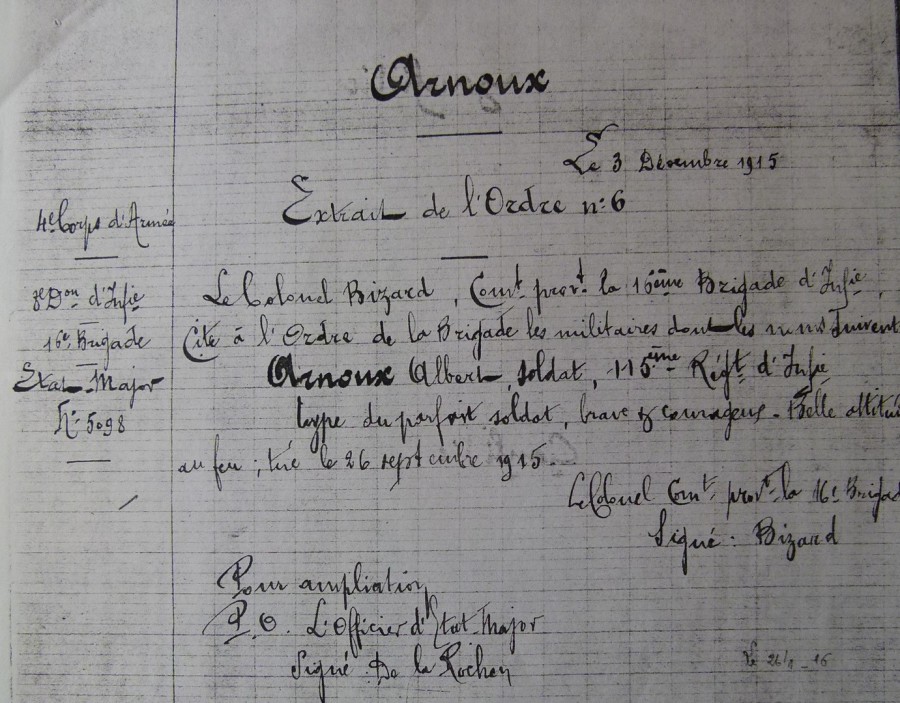 Arnoux
Le 3 Décembre 1915
Extrait de l'Ordre n: 6
4e Corps d'Armée
8e Don d'Infie
16e Brigade
Etat Major
N: 5098
Le Colonel Bizard, Comt provt la 16ème Brigade d'Infie,
Cite à l'Ordre de la Brigade les militaires dont les noms suivent
Arnoux Albert, soldat, 115ème Régt d'Infie
type du parfait soldat, brave & courageux - Belle attitu
au feu ; tué le 26 septembre 1915.
Le Colonel Comt provt la 16e Brigad
Signé : Bizard
Pour ampliation
P.O. L'Officier d'Etat-Major
Signé De la